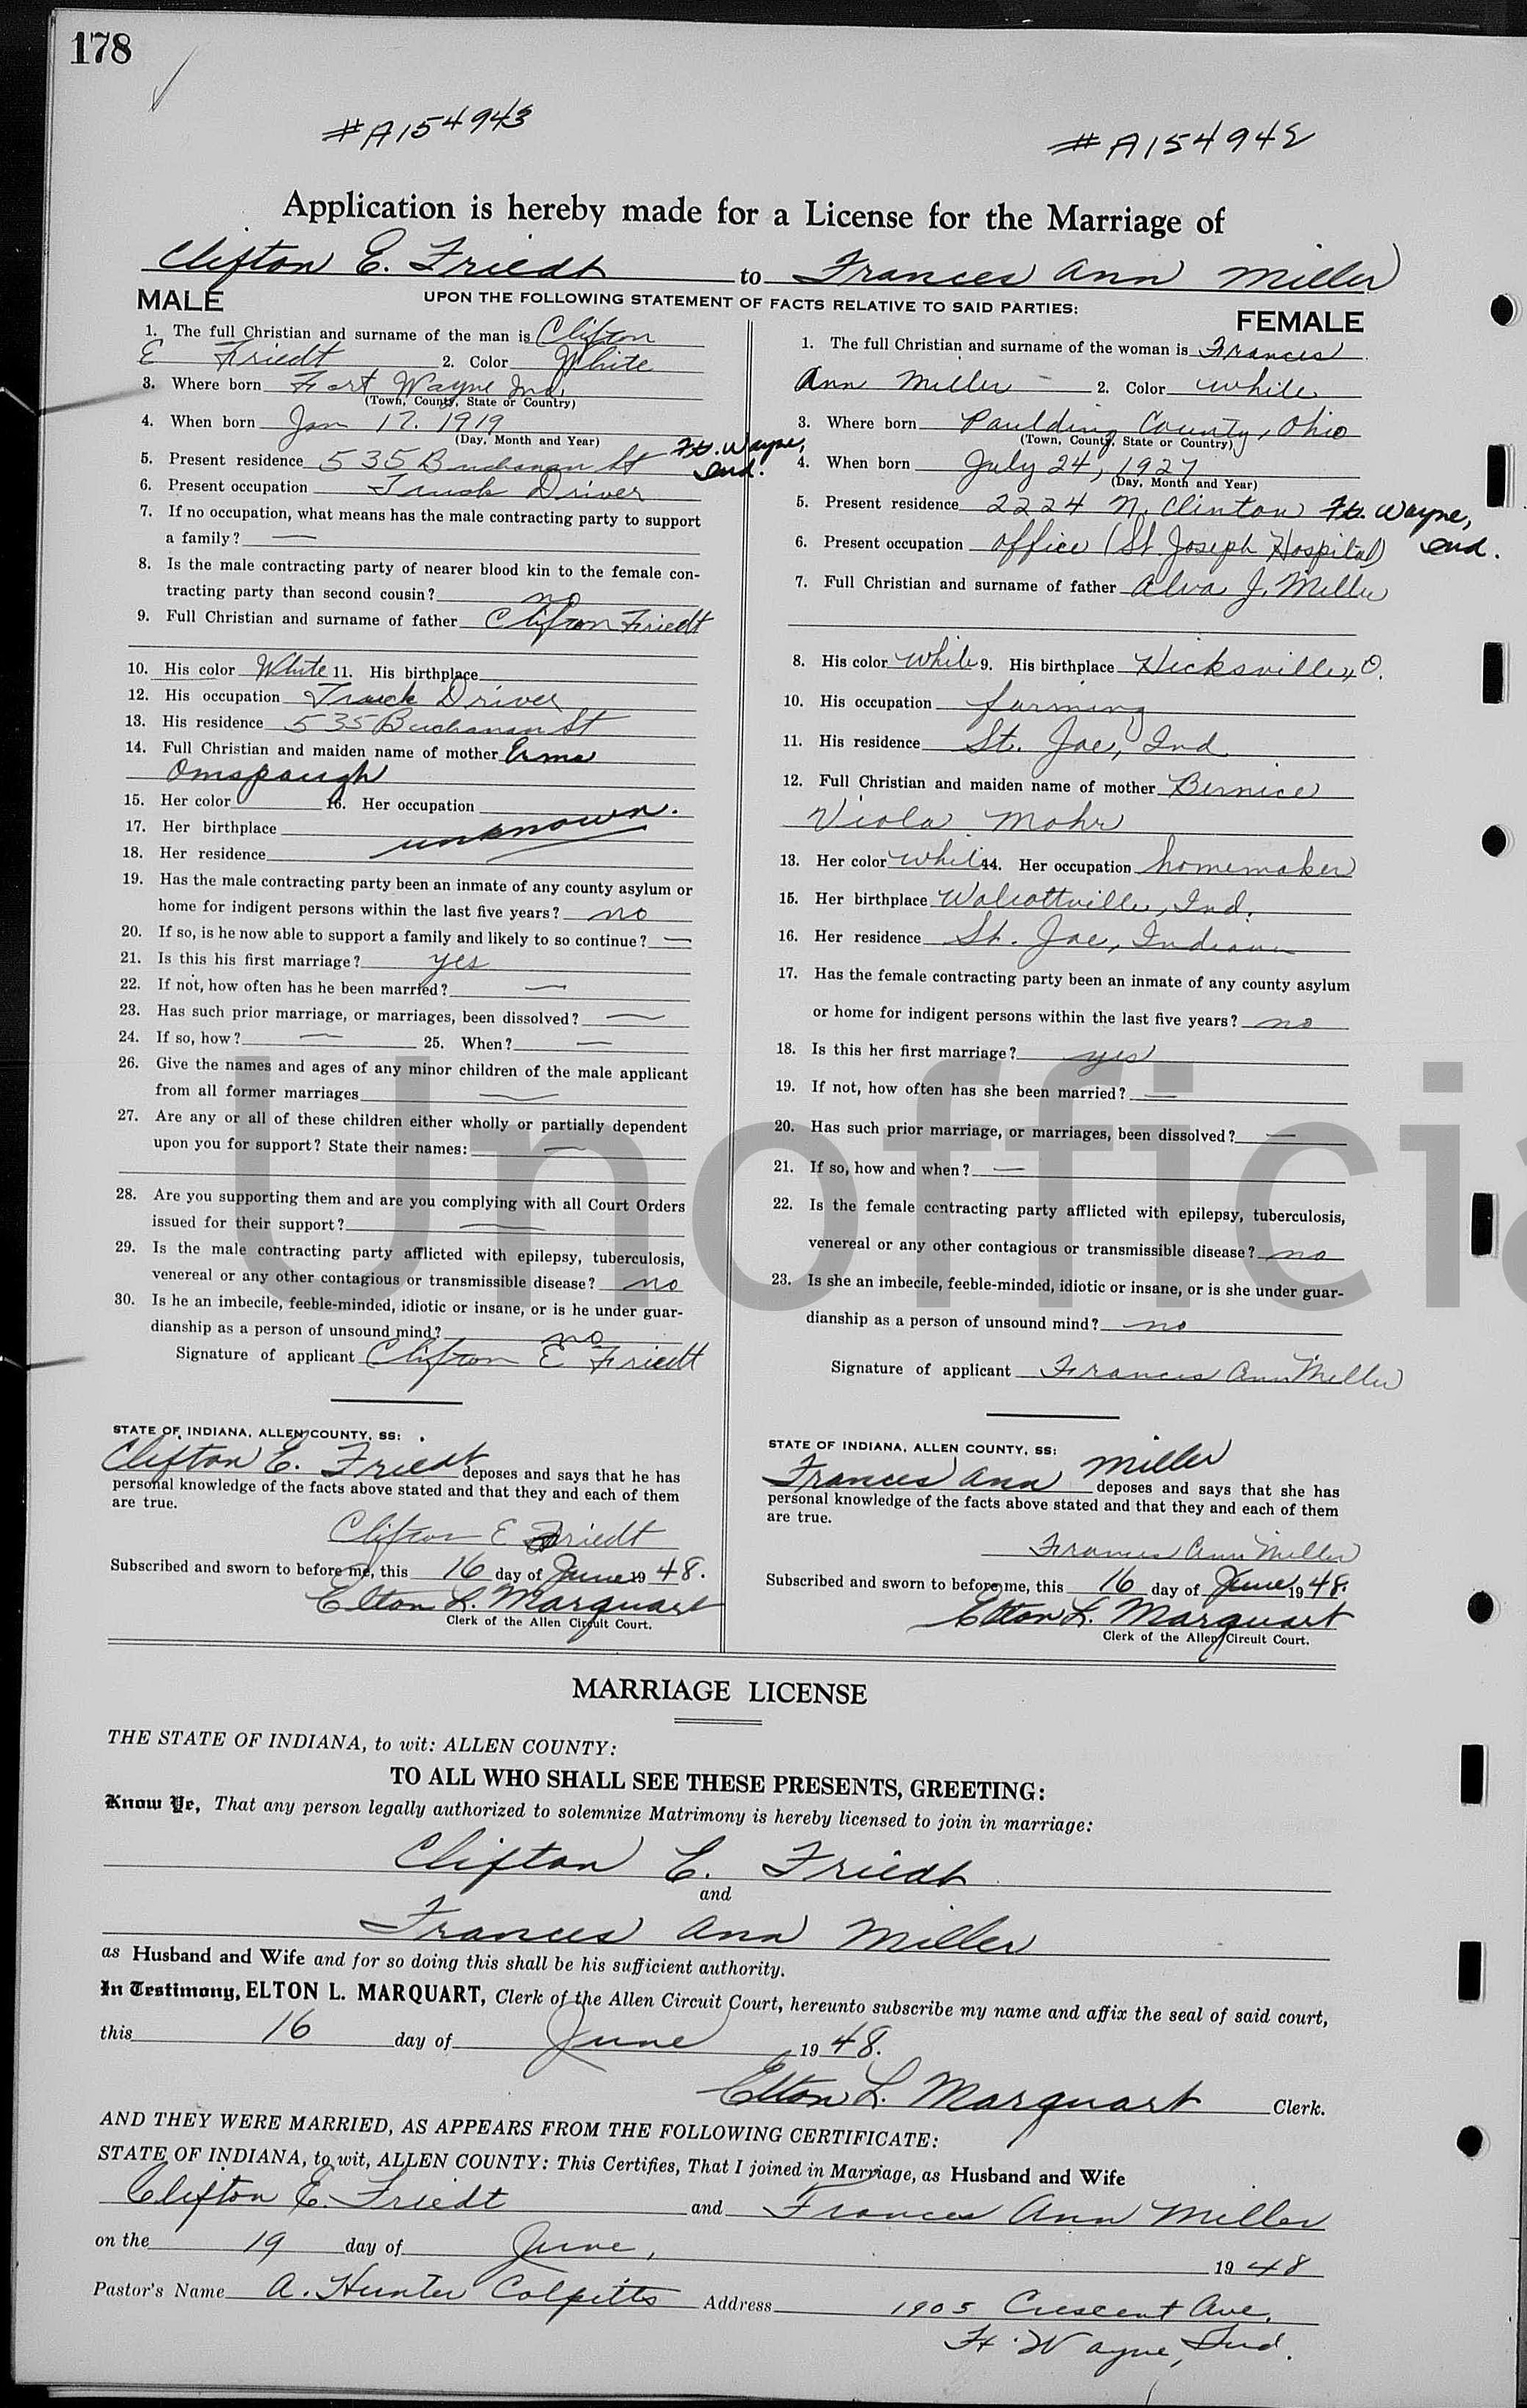 178
#A154943
#A154942
Application is hereby made for a License for the Marriage of
Clifton E. Friedt to Frances Ann Miller
UPON THE FOLLOWING STATEMENT OF FACTS RELATIVE TO SAID PARTIES:
MALE
1. The full Christian and surname of the man is Clifton
E Friedt 2. Color White
3. Where born Fort Wayne Ind.
(Town, County, State or Country)
4. When born Jan 17. 1919
(Day, Month and Year)
5. Present residence 535 Buchanan St Ft. Wayne,
Ind.
6. Present occupation Truck Driver
7. If no occupation, what means has the male contracting party to support
a family? —
8. Is the male contracting party of nearer blood kin to the female con-
tracting party than second cousin? no
9. Full Christian and surname of father Clifton Friedt
10. His color White 11. His birthplace
12. His occupation Truck Driver
13. His residence 535 Buchanan St
14. Full Christian and maiden name of mother Erma
Omspaugh
15. Her color 16. Her occupation
17. Her birthplace unknown.
18. Her residence
19. Has the male contracting party been an inmate of any county asylum or
home for indigent persons within the last five years? no
20. If so, is he now able to support a family and likely to so continue? —
21. Is this his first marriage? yes
22. If not, how often has he been married? —
23. Has such prior marriage, or marriages, been dissolved? —
24. If so, how? — 25. When? —
26. Give the names and ages of any minor children of the male applicant
from all former marriages —
27. Are any or all of these children either wholly or partially dependent
upon you for support? State their names: —
28. Are you supporting them and are you complying with all Court Orders
issued for their support? —
29. Is the male contracting party afflicted with epilepsy, tuberculosis,
venereal or any other contagious or transmissible disease? no
30. Is he an imbecile, feeble-minded, idiotic or insane, or is he under guar-
dianship as a person of unsound mind? no
Signature of applicant Clifton E Friedt
STATE OF INDIANA, ALLEN COUNTY, SS:
Clifton E. Friedt deposes and says that he has
personal knowledge of the facts above stated and that they and each of them
are true.
Clifton E Friedt
Subscribed and sworn to before me, this 16 day of June 1948.
Elton L. Marquart
Clerk of the Allen Circuit Court.
FEMALE
1. The full Christian and surname of the woman is Frances
Ann Miller — 2. Color White
3. Where born Paulding County, Ohio
(Town, County, State or Country)
4. When born July 24, 1927
(Day, Month and Year)
5. Present residence 2224 N. Clinton Ft. Wayne,
Ind.
6. Present occupation office (St Joseph Hospital)
7. Full Christian and surname of father Alva J. Miller
8. His color White 9. His birthplace Hicksville, O.
10. His occupation farming
11. His residence St. Joe, Ind
12. Full Christian and maiden name of mother Bernice
Viola Mohr
13. Her color White 14. Her occupation homemaker
15. Her birthplace Wolcottville, Ind.
16. Her residence St. Joe, Indiana
17. Has the female contracting party been an inmate of any county asylum
or home for indigent persons within the last five years? no
18. Is this her first marriage? yes
19. If not, how often has she been married? —
20. Has such prior marriage, or marriages, been dissolved? —
21. If so, how and when? —
22. Is the female contracting party afflicted with epilepsy, tuberculosis,
venereal or any other contagious or transmissible disease? no
23. Is she an imbecile, feeble-minded, idiotic or insane, or is she under guar-
dianship as a person of unsound mind? no
Signature of applicant Frances Ann Miller
STATE OF INDIANA, ALLEN COUNTY, SS:
Frances Ann Miller deposes and says that she has
personal knowledge of the facts above stated and that they and each of them
are true.
Frances Ann Miller
Subscribed and sworn to before me, this 16 day of June 1948.
Elton L. Marquart
Clerk of the Allen Circuit Court.
Unofficia
MARRIAGE LICENSE
THE STATE OF INDIANA, to wit: ALLEN COUNTY:
TO ALL WHO SHALL SEE THESE PRESENTS, GREETING:
Know Ye, That any person legally authorized to solemnize Matrimony is hereby licensed to join in marriage:
Clifton E. Friedt
and
Frances Ann Miller
as Husband and Wife and for so doing this shall be his sufficient authority.
In Testimony, ELTON L. MARQUART, Clerk of the Allen Circuit Court, hereunto subscribe my name and affix the seal of said court,
this 16 day of June 1948.
Elton L. Marquart Clerk.
AND THEY WERE MARRIED, AS APPEARS FROM THE FOLLOWING CERTIFICATE:
STATE OF INDIANA, to wit, ALLEN COUNTY: This Certifies, That I joined in Marriage, as Husband and Wife
Clifton E. Friedt and Frances Ann Miller
on the 19 day of June, 1948
Pastor's Name A. Hunter Colpitts Address 1905 Crescent Ave.
Ft. Wayne, Ind.